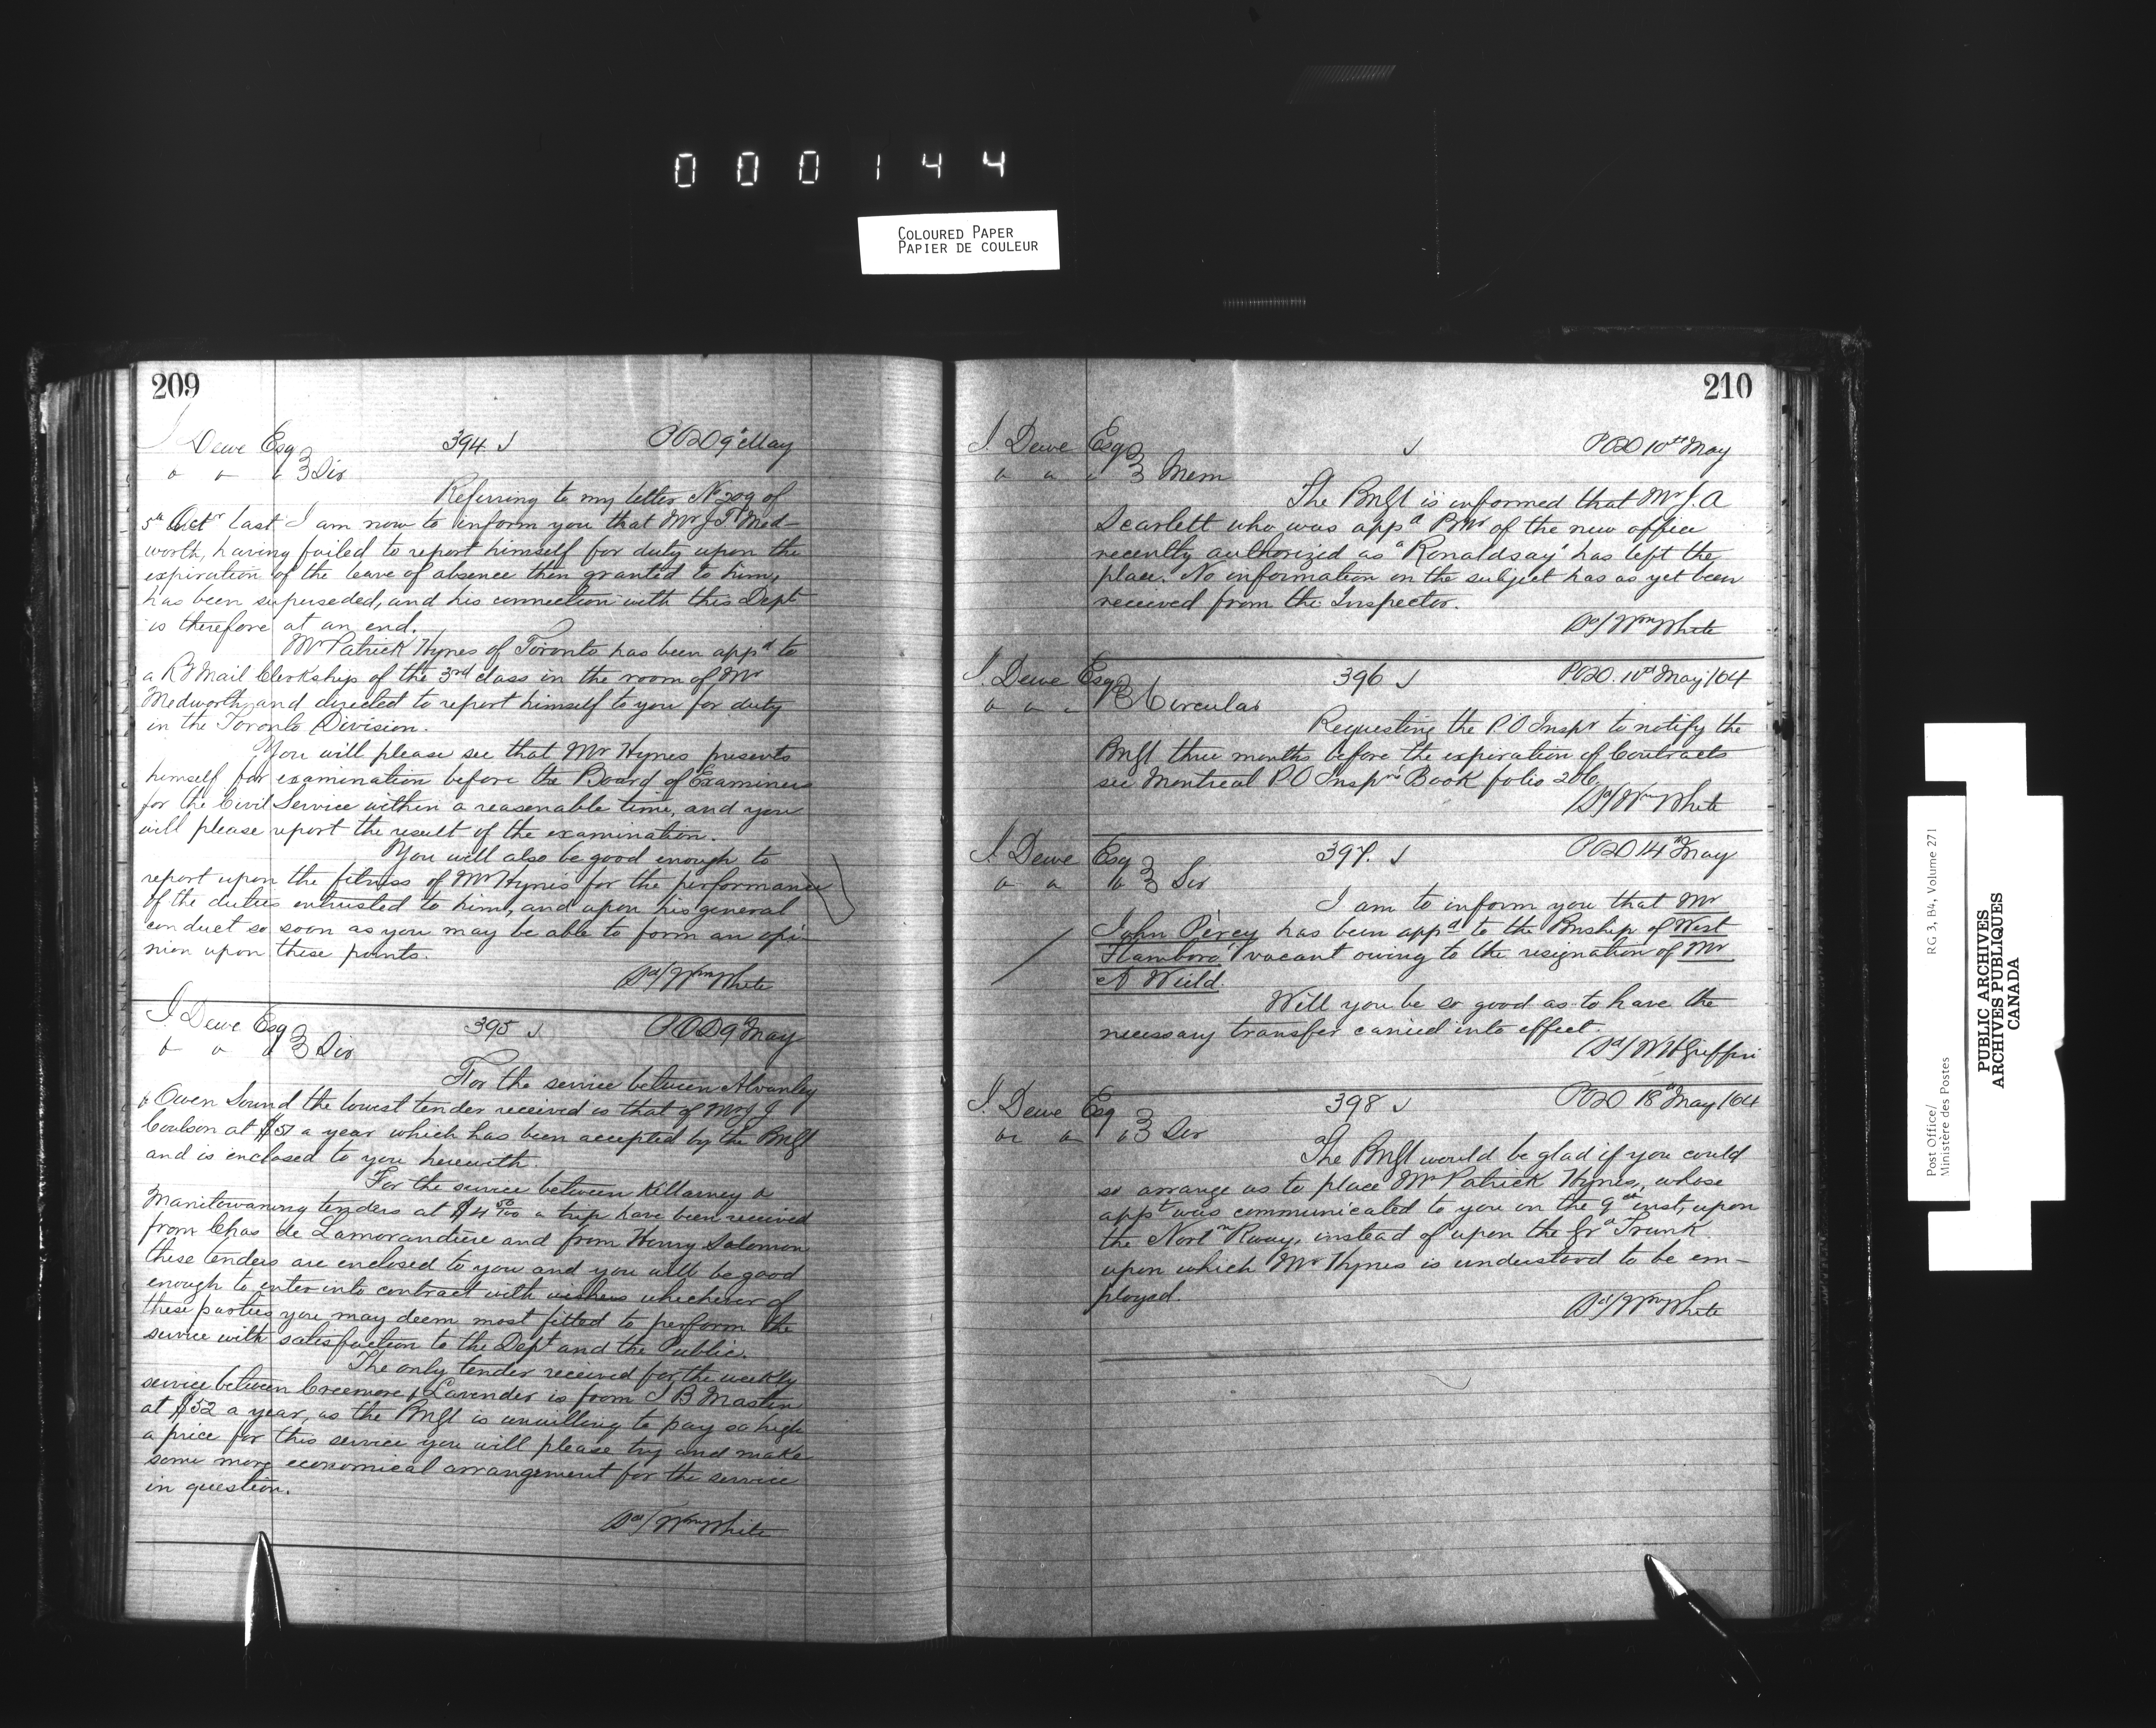 000144
COLOURED PAPER
PAPIER DE COULEUR
209
J Dewe Esq 394 POD 9th May
Sir
Referring to my letter No 209 of
5th Octr last I am now to inform you that Mr J T Med-
worth, having failed to report himself for duty upon the
expiration of the leave of absence then granted to him,
has been superseded, and his connection with this Dept
is therefore at an end.
Mr Patrick Hynes of Toronto has been appd to
a Ry Mail Clerkship of the 3rd class in the room of Mr
Medworth, and directed to report himself to you for duty
in the Toronto Division.
You will please see that Mr Hynes presents
himself for examination before the Board of Examiners
for the Civil Service within a reasonable time, and you
will please report the result of the examination.
You will also be good enough to
report upon the fitness of Mr Hynes for the performance
of the duties entrusted to him, and upon his general
conduct so soon as you may be able to form an opi-
nion upon these points.
Sd/ Wm White
J Dewe Esq 395 POD 9th May
Sir
For the service between Alvanley
& Owen Sound the lowest tender received is that of Mr J J
Coulson at $57 a year which has been accepted by the PMGl
and is enclosed to you herewith.
For the service between Killarney &
Manitowaning tenders at $4 50/100 a trip have been received
from Chas de Lamorandiere and from Henry Solomon
these tenders are enclosed to you and you will be good
enough to enter into contract with whichever of
these parties you may deem most fitted to perform the
service with satisfaction to the Dept and the Public.
The only tender received for the weekly
service between Creemore & Lavender is from J B Mastin
at $52 a year, as the PMGl is unwilling to pay so high
a price for this service you will please try and make
some more economical arrangement for the service
in question.
Sd/ Wm White
210
J. Dewe Esq POD 10th May
Mem
The PMGl is informed that Mr J. A
Scarlett who was appd PMr of the new office
recently authorized as "Ronaldsay" has left the
place. No information on the subject has as yet been
received from the Inspector.
Sd/ Wm White
J. Dewe Esq 396 POD. 10th May/64
Circular
Requesting the P O Inspr to notify the
PMGl three months before the expiration of Contracts
see Montreal P O Inspr's Book folio 206
Sd/ Wm White
J. Dewe Esq 397. POD 14th May
Sir
I am to inform you that Mr
John Percy has been appd to the PMship of West
Flamboro' vacant owing to the resignation of Mr
A Weild.
Will you be so good as to have the
necessary transfer carried into effect.
Sd/ W H Griffin
J. Dewe Esq 398 POD 18th May/64
Sir
The PMGl would be glad if you could
so arrange as to place Mr Patrick Hynes, whose
appt was communicated to you on the 9th inst, upon
the Nortn Rway, instead of upon the Grd Trunk
upon which Mr Hynes is understood to be em-
ployed.
Sd/ Wm White
Post Office/
Ministère des Postes
RG 3, B4, Volume 271
PUBLIC ARCHIVES
ARCHIVES PUBLIQUES
CANADA